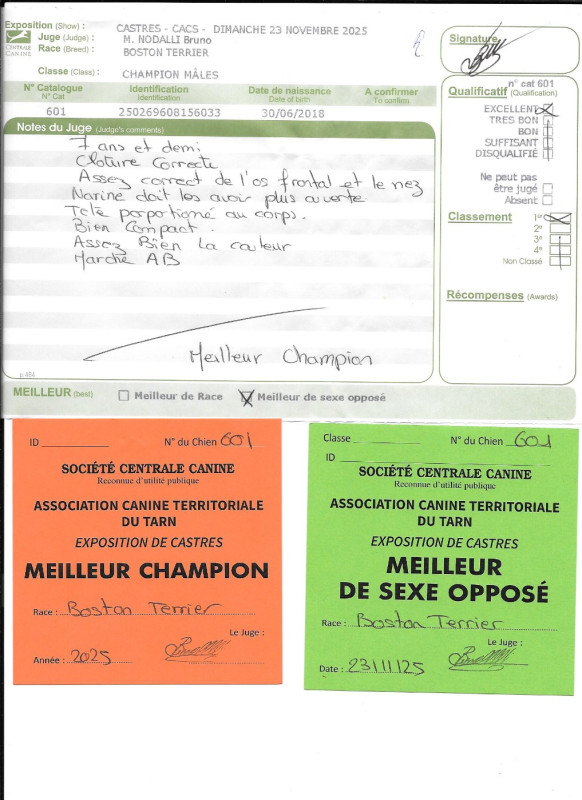 Exposition (Show) : CASTRES - CACS - DIMANCHE 23 NOVEMBRE 2025
Juge (Judge) : M. NODALLI Bruno
Race (Breed) : BOSTON TERRIER
CENTRALE CANINE
Classe (Class) : CHAMPION MÂLES
Signature
N° Catalogue Identification Date de naissance A confirmer
N° Cat Identification Date of birth To confirm
601 250269608156033 30/06/2018
n° cat 601
Qualificatif (Qualification)
EXCELLENT
TRES BON
BON
SUFFISANT
DISQUALIFIÉ
Ne peut pas
être jugé
Absent
Classement 1er
2e
3e
4e
Non Classé
Récompenses (Awards)
Notes du Juge (Judge's comments)
7 ans et demi
Cloture Correcte
Assez correct de l'os frontal et le nez
Narine doit les avoir plus ouverte
Tetê porportioné au corps.
Bien Compact.
Assez Bien La couleur
Marche AB
Meilleur Champion
MEILLEUR (best) Meilleur de Race Meilleur de sexe opposé
ID N° du Chien 601
SOCIÉTÉ CENTRALE CANINE
Reconnue d'utilité publique
ASSOCIATION CANINE TERRITORIALE
DU TARN
EXPOSITION DE CASTRES
MEILLEUR CHAMPION
Race : Boston Terrier
Le Juge :
Année : 2025
Classe N° du Chien 601
ID
SOCIÉTÉ CENTRALE CANINE
Reconnue d'utilité publique
ASSOCIATION CANINE TERRITORIALE
DU TARN
EXPOSITION DE CASTRES
MEILLEUR
DE SEXE OPPOSÉ
Race : Boston Terrier
Le Juge :
Date : 23/11/25